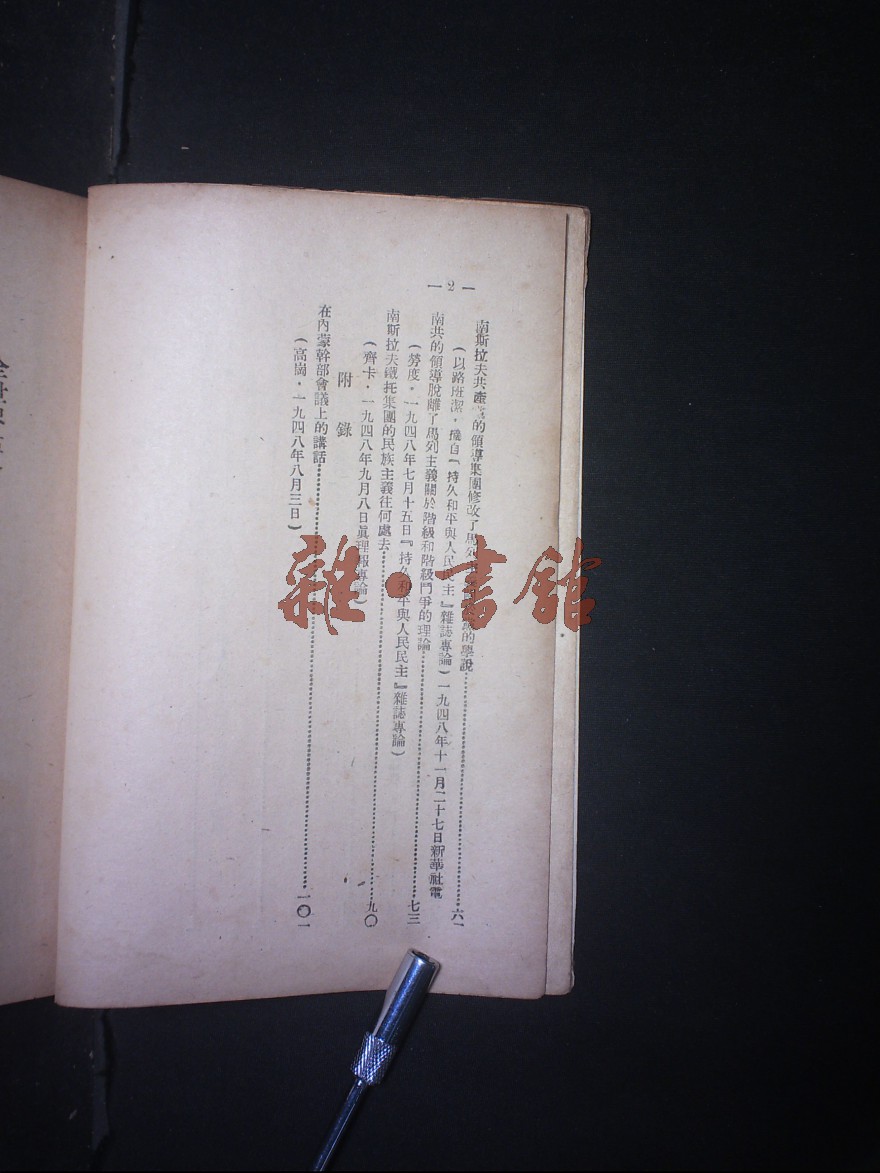 一 2 一
南斯拉夫共產黨的領導集團修改了馬列主義 的學說……六一
(以路班潔,摘自「持久和平與人民民主』雜誌專論)一九四八年十一月二十七日新華社電
南共的領導脫離了馬列主義關於階級和階級鬥爭的理論……七三
(勞度·一九四八年七月十五日『持久和平與人民民主』雜誌專論)
南斯拉夫鐵托集團的民族主義往何處去……九〇
(齊卡·一九四八年九月八日眞理報專論)
附 錄
在內蒙幹部會議上的講話……一〇一
(高崗·一九四八年八月三日)
雜·書館